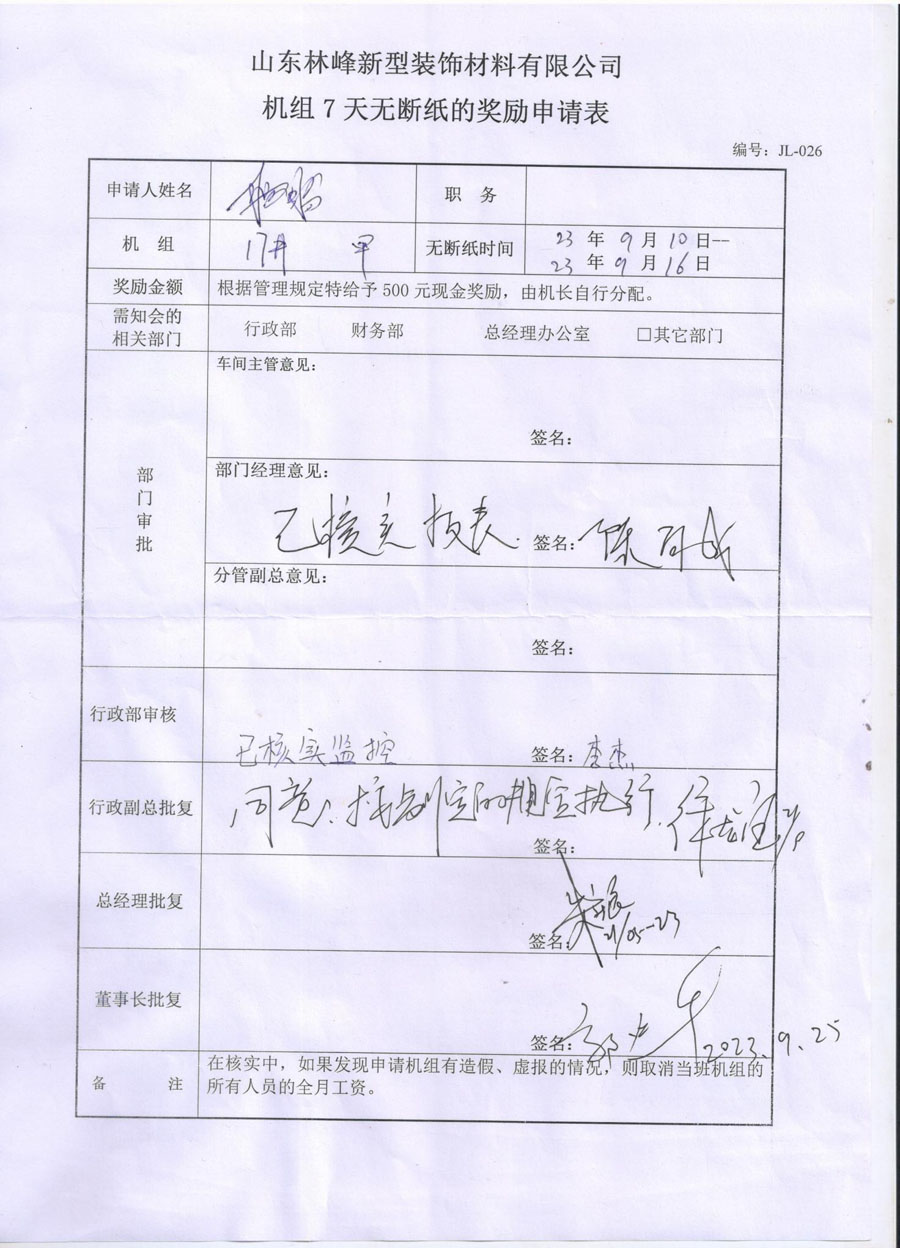 山东林峰新型装饰材料有限公司
机组7天无断纸的奖励申请表
编号：JL-026
申请人姓名 职 务
机 组 17# 甲 无断纸时间 23年9月10日--
23年9月16日
奖励金额 根据管理规定特给予500元现金奖励，由机长自行分配。
需知会的
相关部门 行政部 财务部 总经理办公室 □其它部门
部门审批
车间主管意见：
签名：
部门经理意见：
已核实报表 签名：
分管副总意见：
签名：
行政部审核
已核实监控 签名：李杰
行政副总批复 同意
签名：
总经理批复
签名：
董事长批复
签名： 2023.9.25
备 注 在核实中，如果发现申请机组有造假、虚报的情况，则取消当班机组的
所有人员的全月工资。